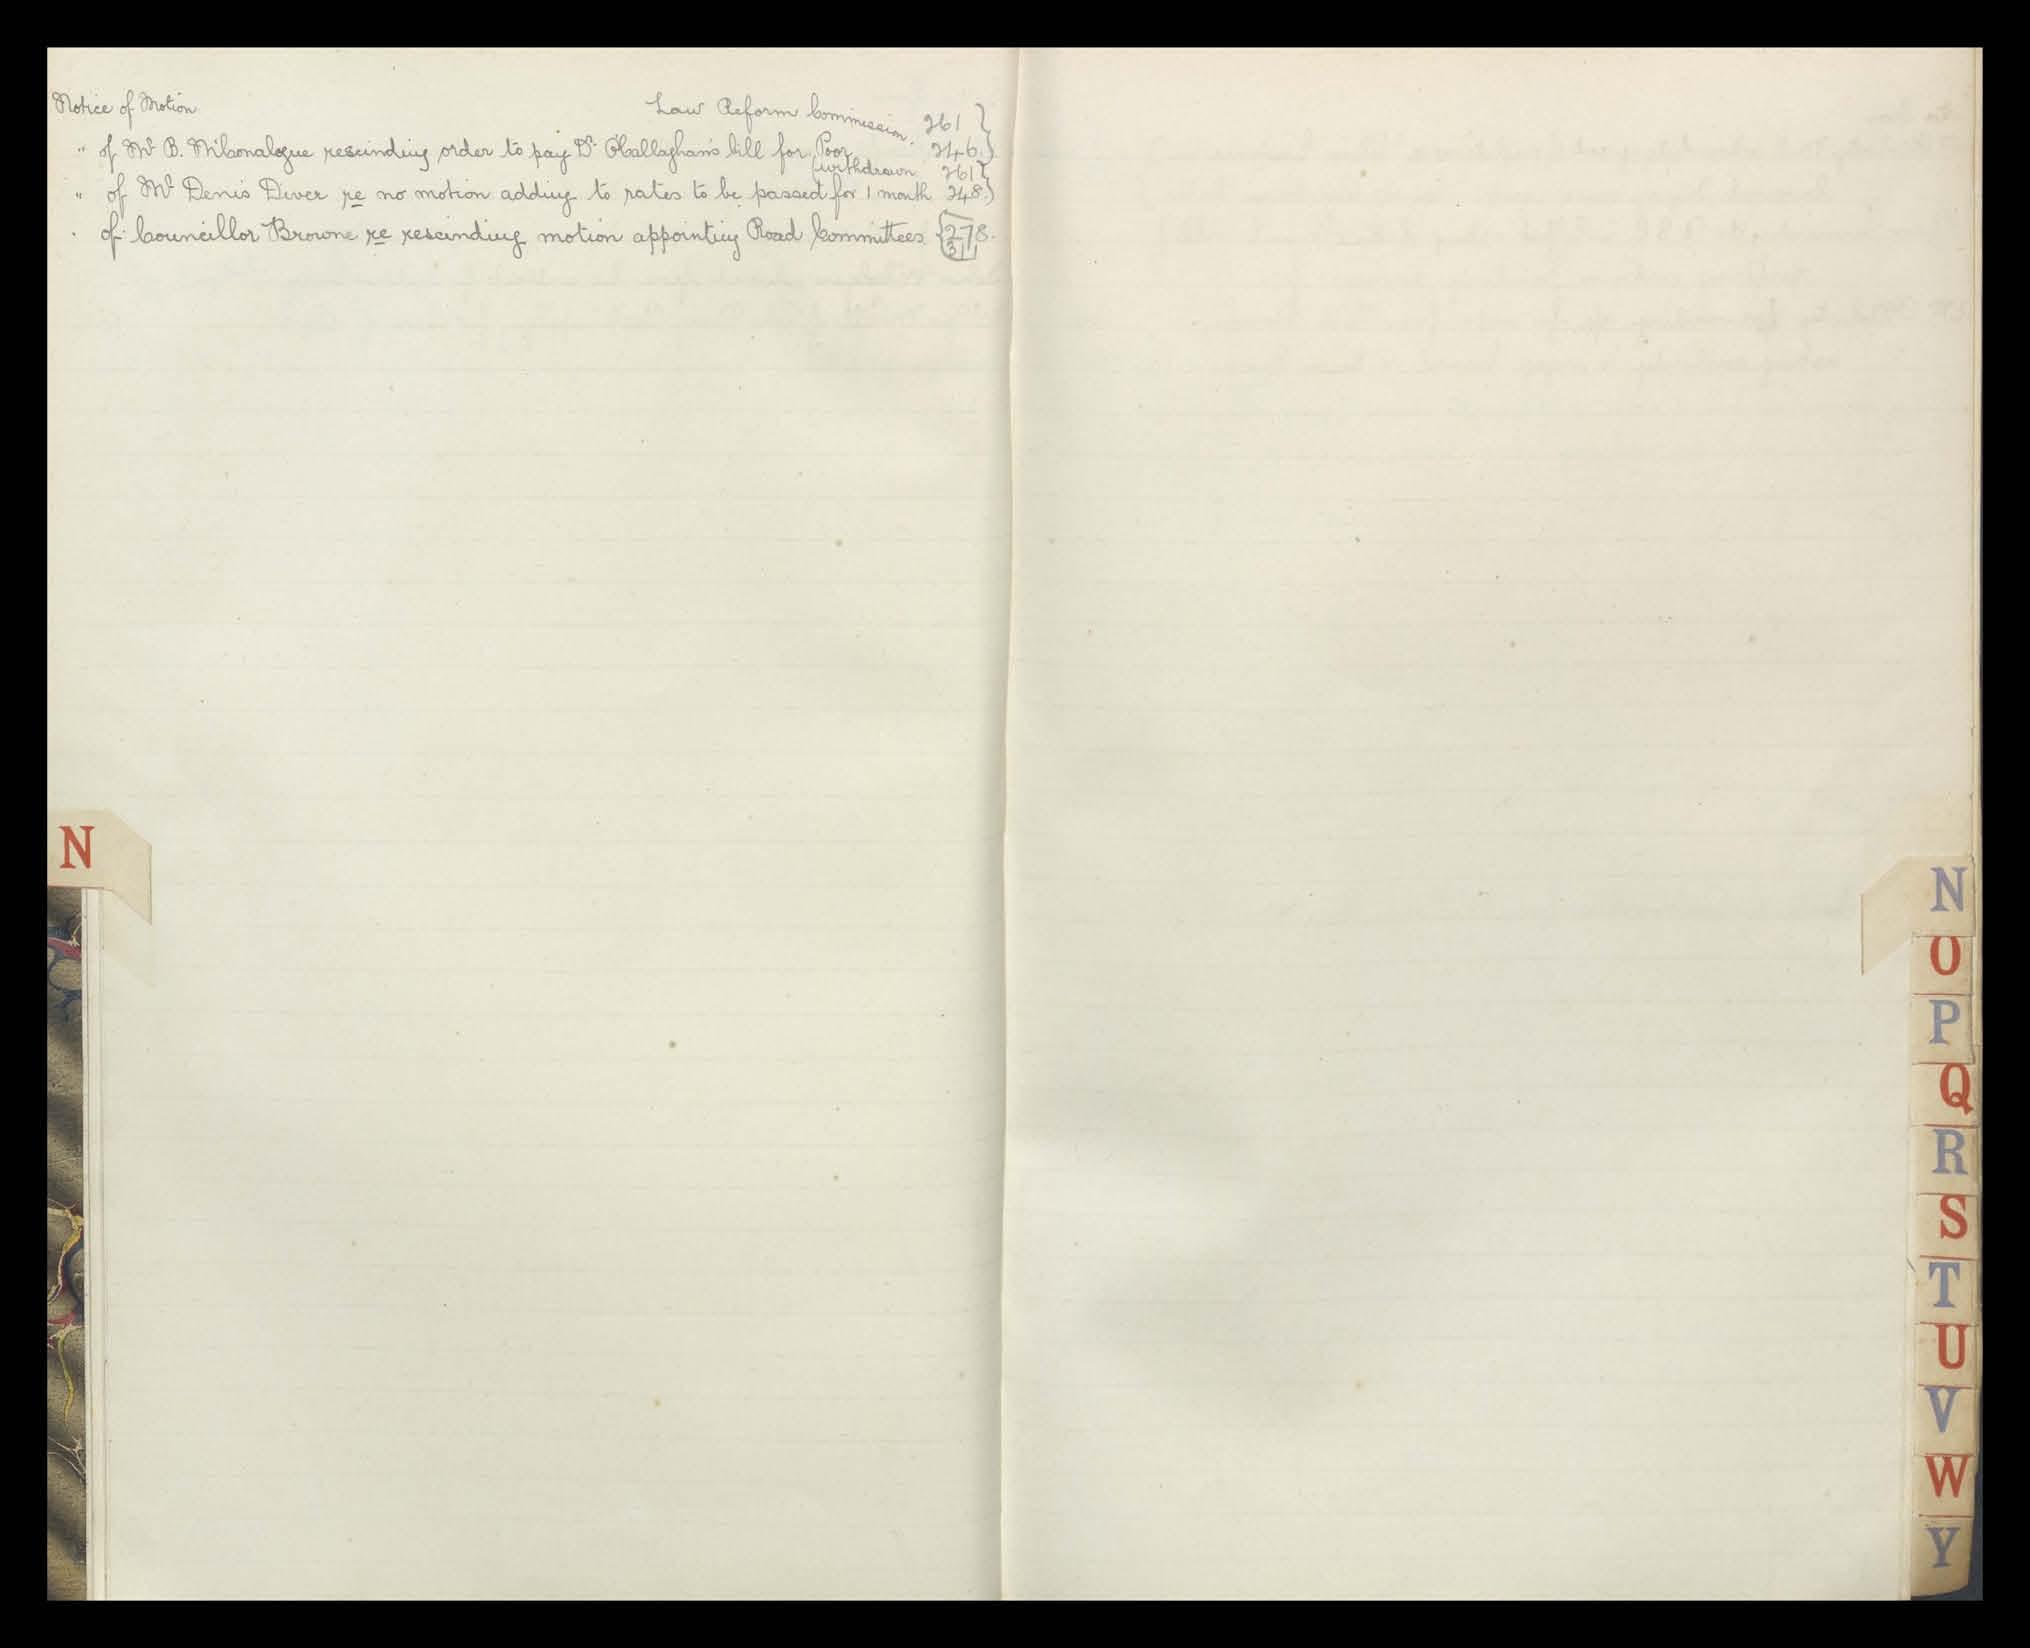 Notice of Motion
Law Reform Commission. 261
" of Mr B. McConalogue rescinding order to pay Dr O'Callaghan's bill for Poor 246.
(withdrawn 261
" of Mr Denis Diver re no motion adding to rates to be passed for 1 month 248.
. of Councillor Browne re rescinding motion appointing Road Committees {278.
311
N
N
O
P
Q
R
S
T
U
V
W
Y